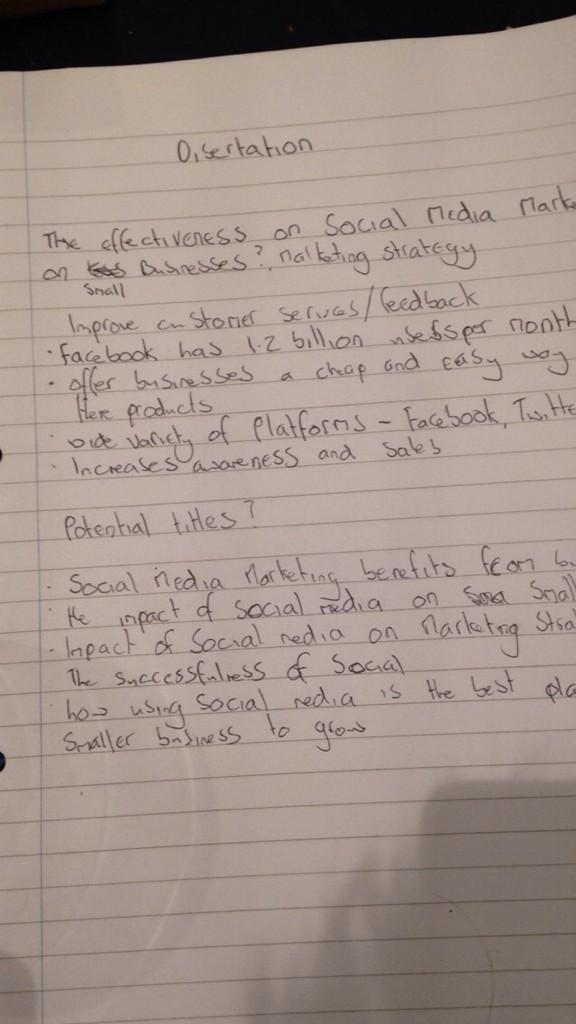 Disertation
The effectiveness on Social Media Marke
on Businesses?, Marketing strategy
Small
Improve customer services/feedback
· Facebook has 1.2 billion users per month
· offer businesses a cheap and easy way
there products
· wide variety of Platforms - Facebook, Twitte
· Increases awareness and sales
Potential titles?
· Social Media Marketing benefits from
· the impact of social media on Small
· Impact of Social media on Marketing
The successfulness of Social
· how using Social media is the best pla
Smaller business to grow